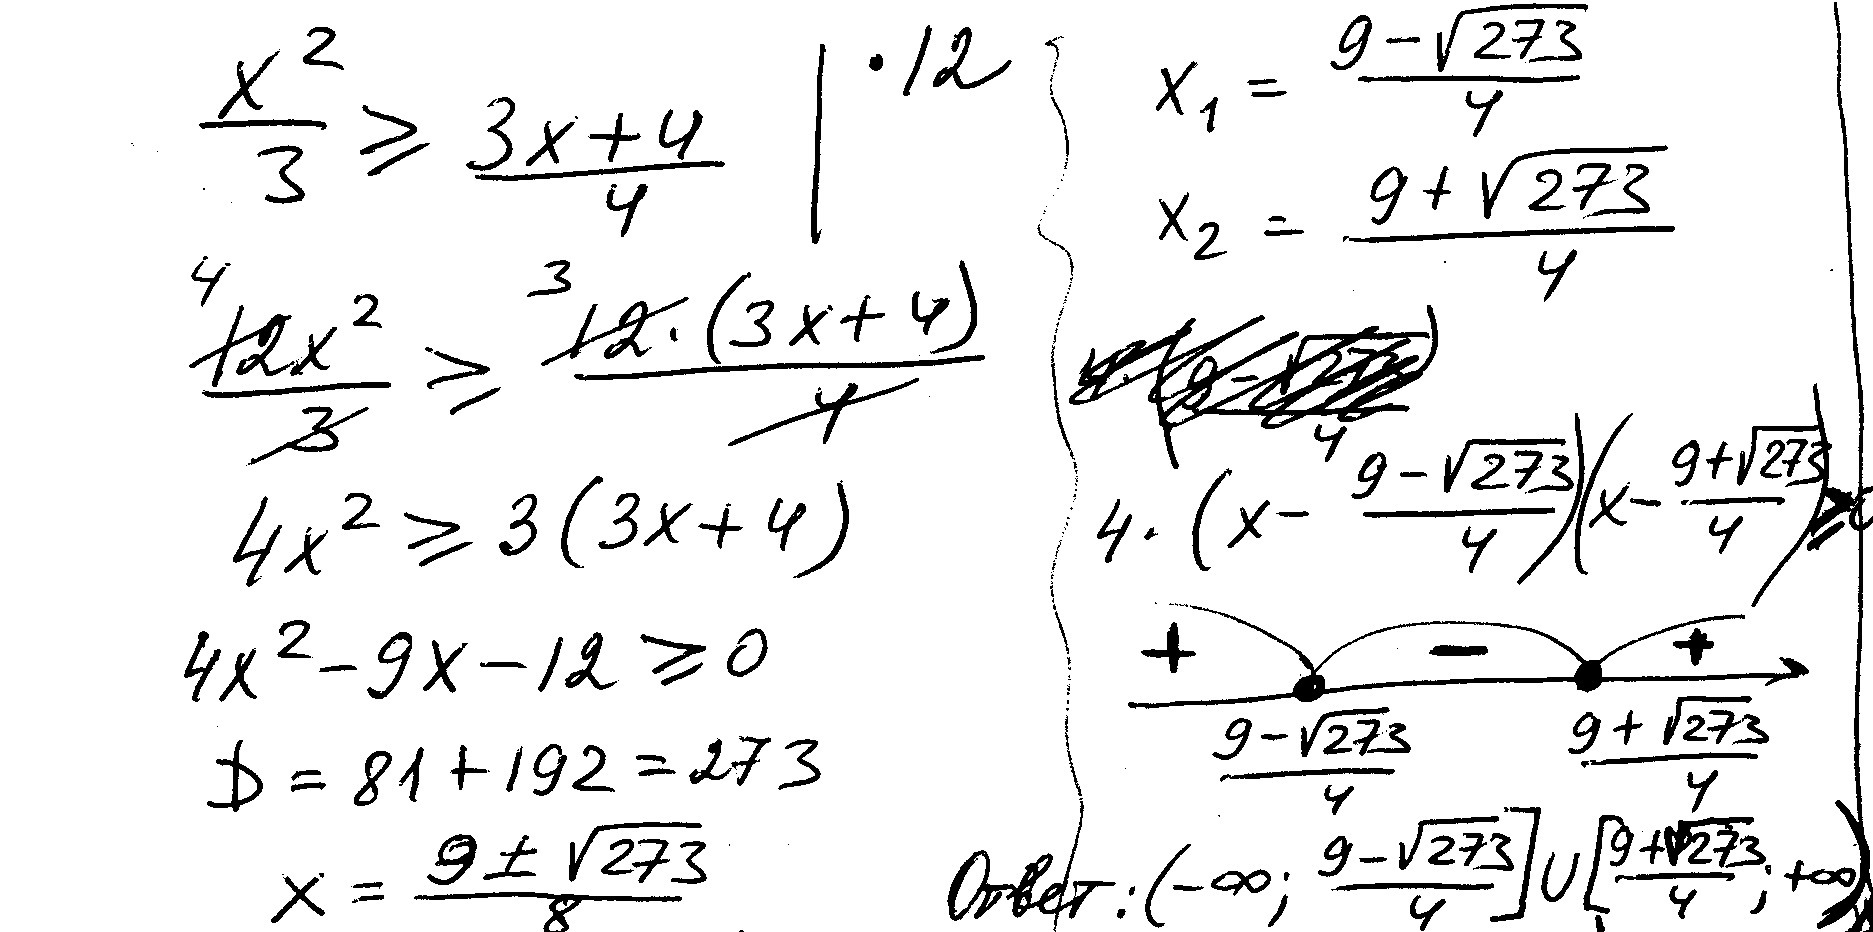 x²/3 ≥ (3x+4)/4 | ·12
⁴12x²/3 ≥ ³12·(3x+4)/4
4x² ≥ 3(3x+4)
4x² - 9x - 12 ≥ 0
D = 81 + 192 = 273
x = (9 ± √273)/8
x₁ = (9 - √273)/4
x₂ = (9 + √273)/4
4·(x - (9 - √273)/4)(x - (9 + √273)/4) ≥ 0
+ - +
(9 - √273)/4 (9 + √273)/4
Ответ: (-∞; (9 - √273)/4] ∪ [(9 + √273)/4; +∞)